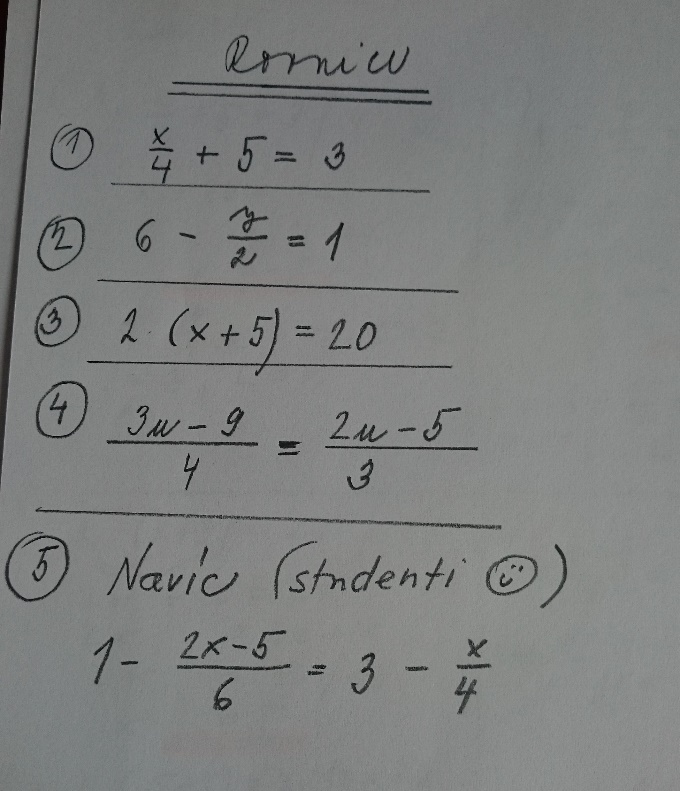 Rovnice
① x/4 + 5 = 3
② 6 - y/2 = 1
③ 2 · (x + 5) = 20
④ (3u - 9)/4 = (2u - 5)/3
⑤ Navíc (studenti ☺)
1 - (2x - 5)/6 = 3 - x/4